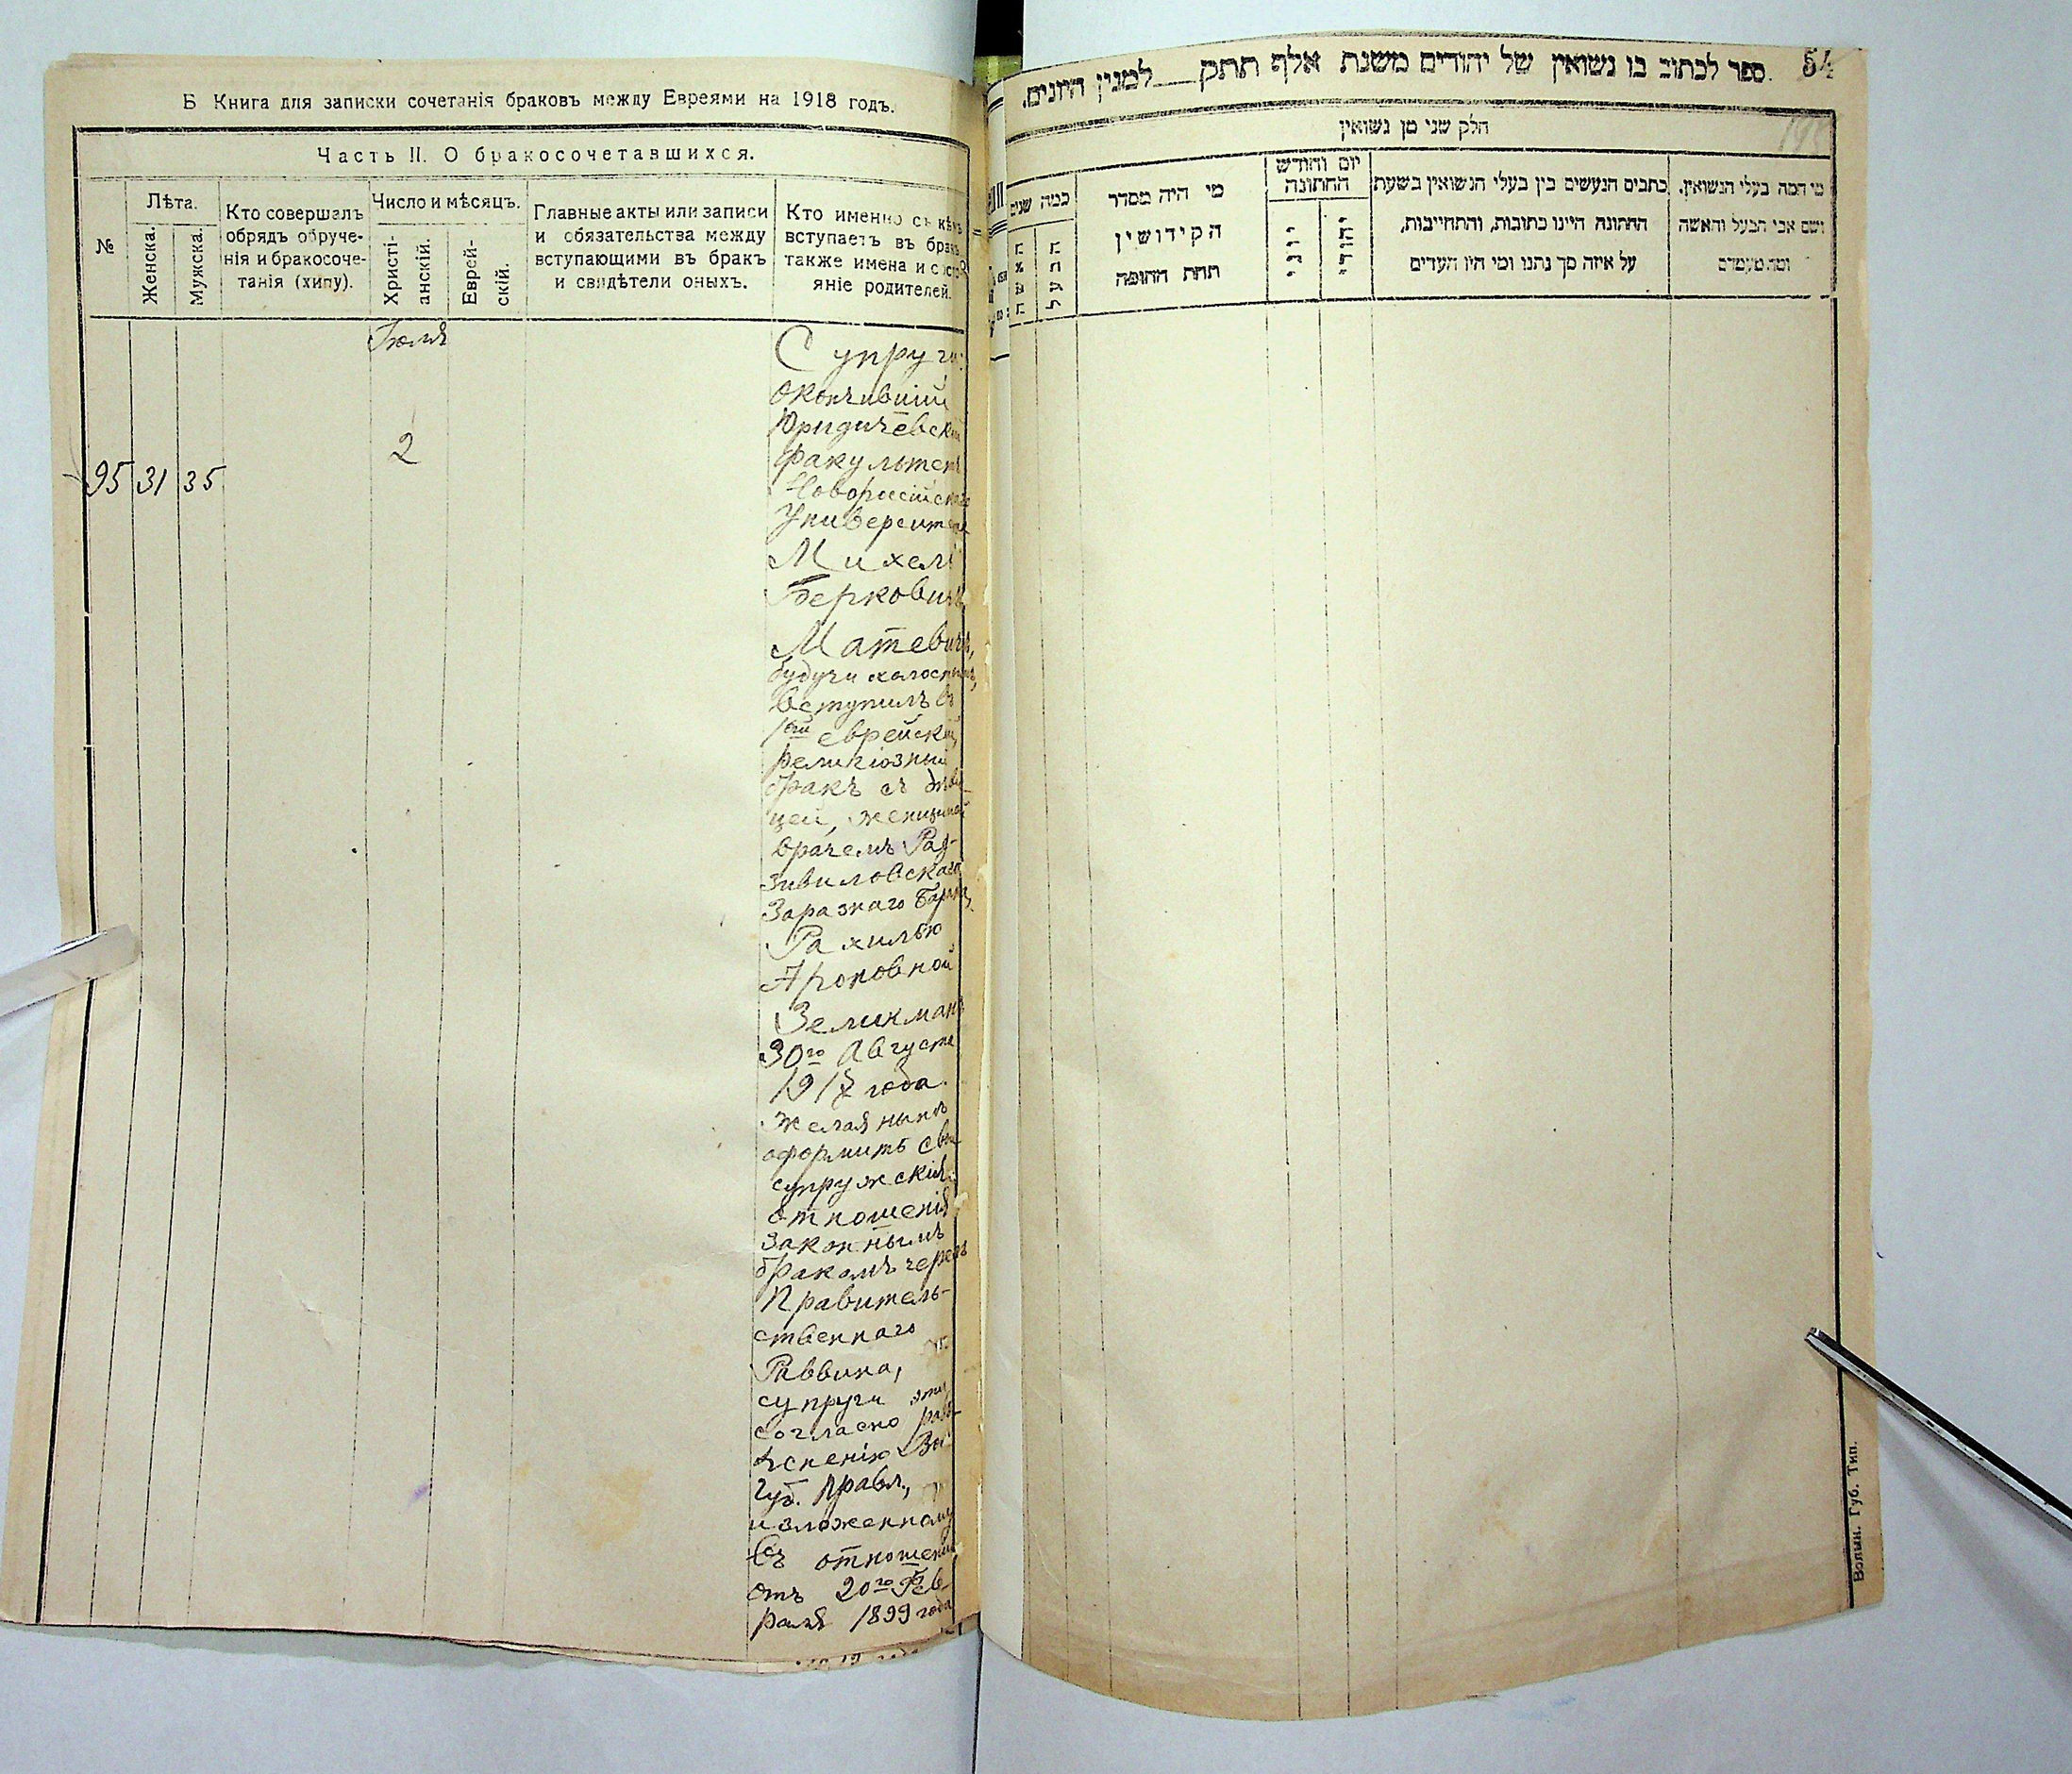 Б Книга для записки сочетанія браковъ между Евреями на 1918 годъ.
Часть II. О бракосочетавшихся.
№
Лѣта.
Женска.
Мужска.
Кто совершалъ
обрядъ обруче-
нія и бракосоче-
танія (хипу).
Число и мѣсяцъ.
Христі-
анскій.
Еврей-
скій.
Главные акты или записи
и обязательства между
вступающими въ бракъ
и свидѣтели оныхъ.
Кто именно съ кѣмъ
вступаетъ въ бракъ
также имена и состо
яніе родителей.
Іюля
2
95 31 35
Супруги:
Окончившій
Юридическій
факультетъ
Новорисійскаго
Университета
Михель
Берковичъ
Матевичъ,
будучи холостымъ,
вступилъ въ
1ый еврейскій
религіозный
бракъ съ дѣви-
цей, женщиной
врачемъ Рад-
зивиловскаго
Заразнаго Барака,
Рахилью
Ароновной
Зеликманъ
30го Августа
1917 года.
Желая нынѣ
оформить свои
супружескія
отношенія
законнымъ
бракомъ черезъ
Правитель-
ственнаго
Раввина,
супруги эти,
согласно разъ-
ясненію Вол.
Губ. Правл.,
изложенному
въ отношеніи
отъ 20го Фев-
раля 1899 года
ספר לכתוב בו נשואין של יהודים משנת אלף תתק למנין היונים.
54
חלק שני מן נשואין
כמה שנים
האשה
הבעל
מי היה מסדר
הקידושין
תחת החופה
יום וחודש
החתונה
יוני
יהודי
כתבים הנעשים בין בעלי הנשואין בשעת
החתונה היינו כתובות, והתחייבות,
על איזה סך נתנו ומי היו העדים
מי המה בעלי הנשואין,
ושם אבי הבעל והאשה
ומה מעמדם
Волын. Губ. Тип.